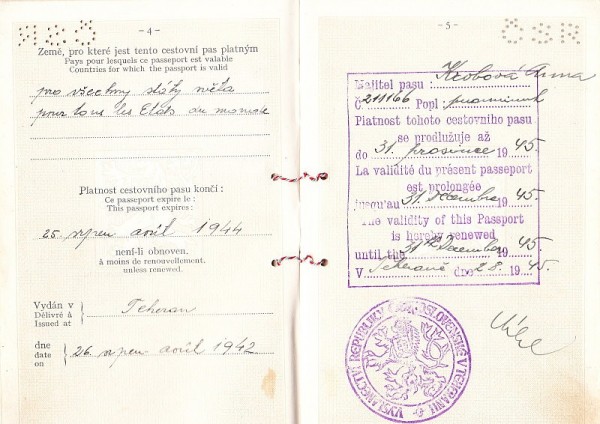 - 4 -
Země, pro které jest tento cestovní pas platným
Pays pour lesquels ce passeport est valable
Countries for which the passport is valid
pro všechny státy světa
pour tous les Etats du monde
Platnost cestovního pasu končí :
Ce passeport expire le :
This passport expires :
25. srpen août 1944
není-li obnoven.
à moins de renouvellement.
unless renewed.
Vydán v
Délivré à
Issued at
Teheran
dne
date
on
26. srpen août 1942
- 5 -
ČSR
Majitel pasu : Krobová Anna
Č. 211166 Popl :
Platnost tohoto cestovního pasu
se prodlužuje až
do 31. prosince 1945.
La validité du présent passeport
est prolongée
jusqu'au 31. Décembre 1945.
The validity of this Passport
is hereby renewed
until the 31th December 1945
V Teheraně dne 2.8. 1945.
VYSLANECTVÍ REPUBLIKY ČESKOSLOVENSKÉ V TEHERANU